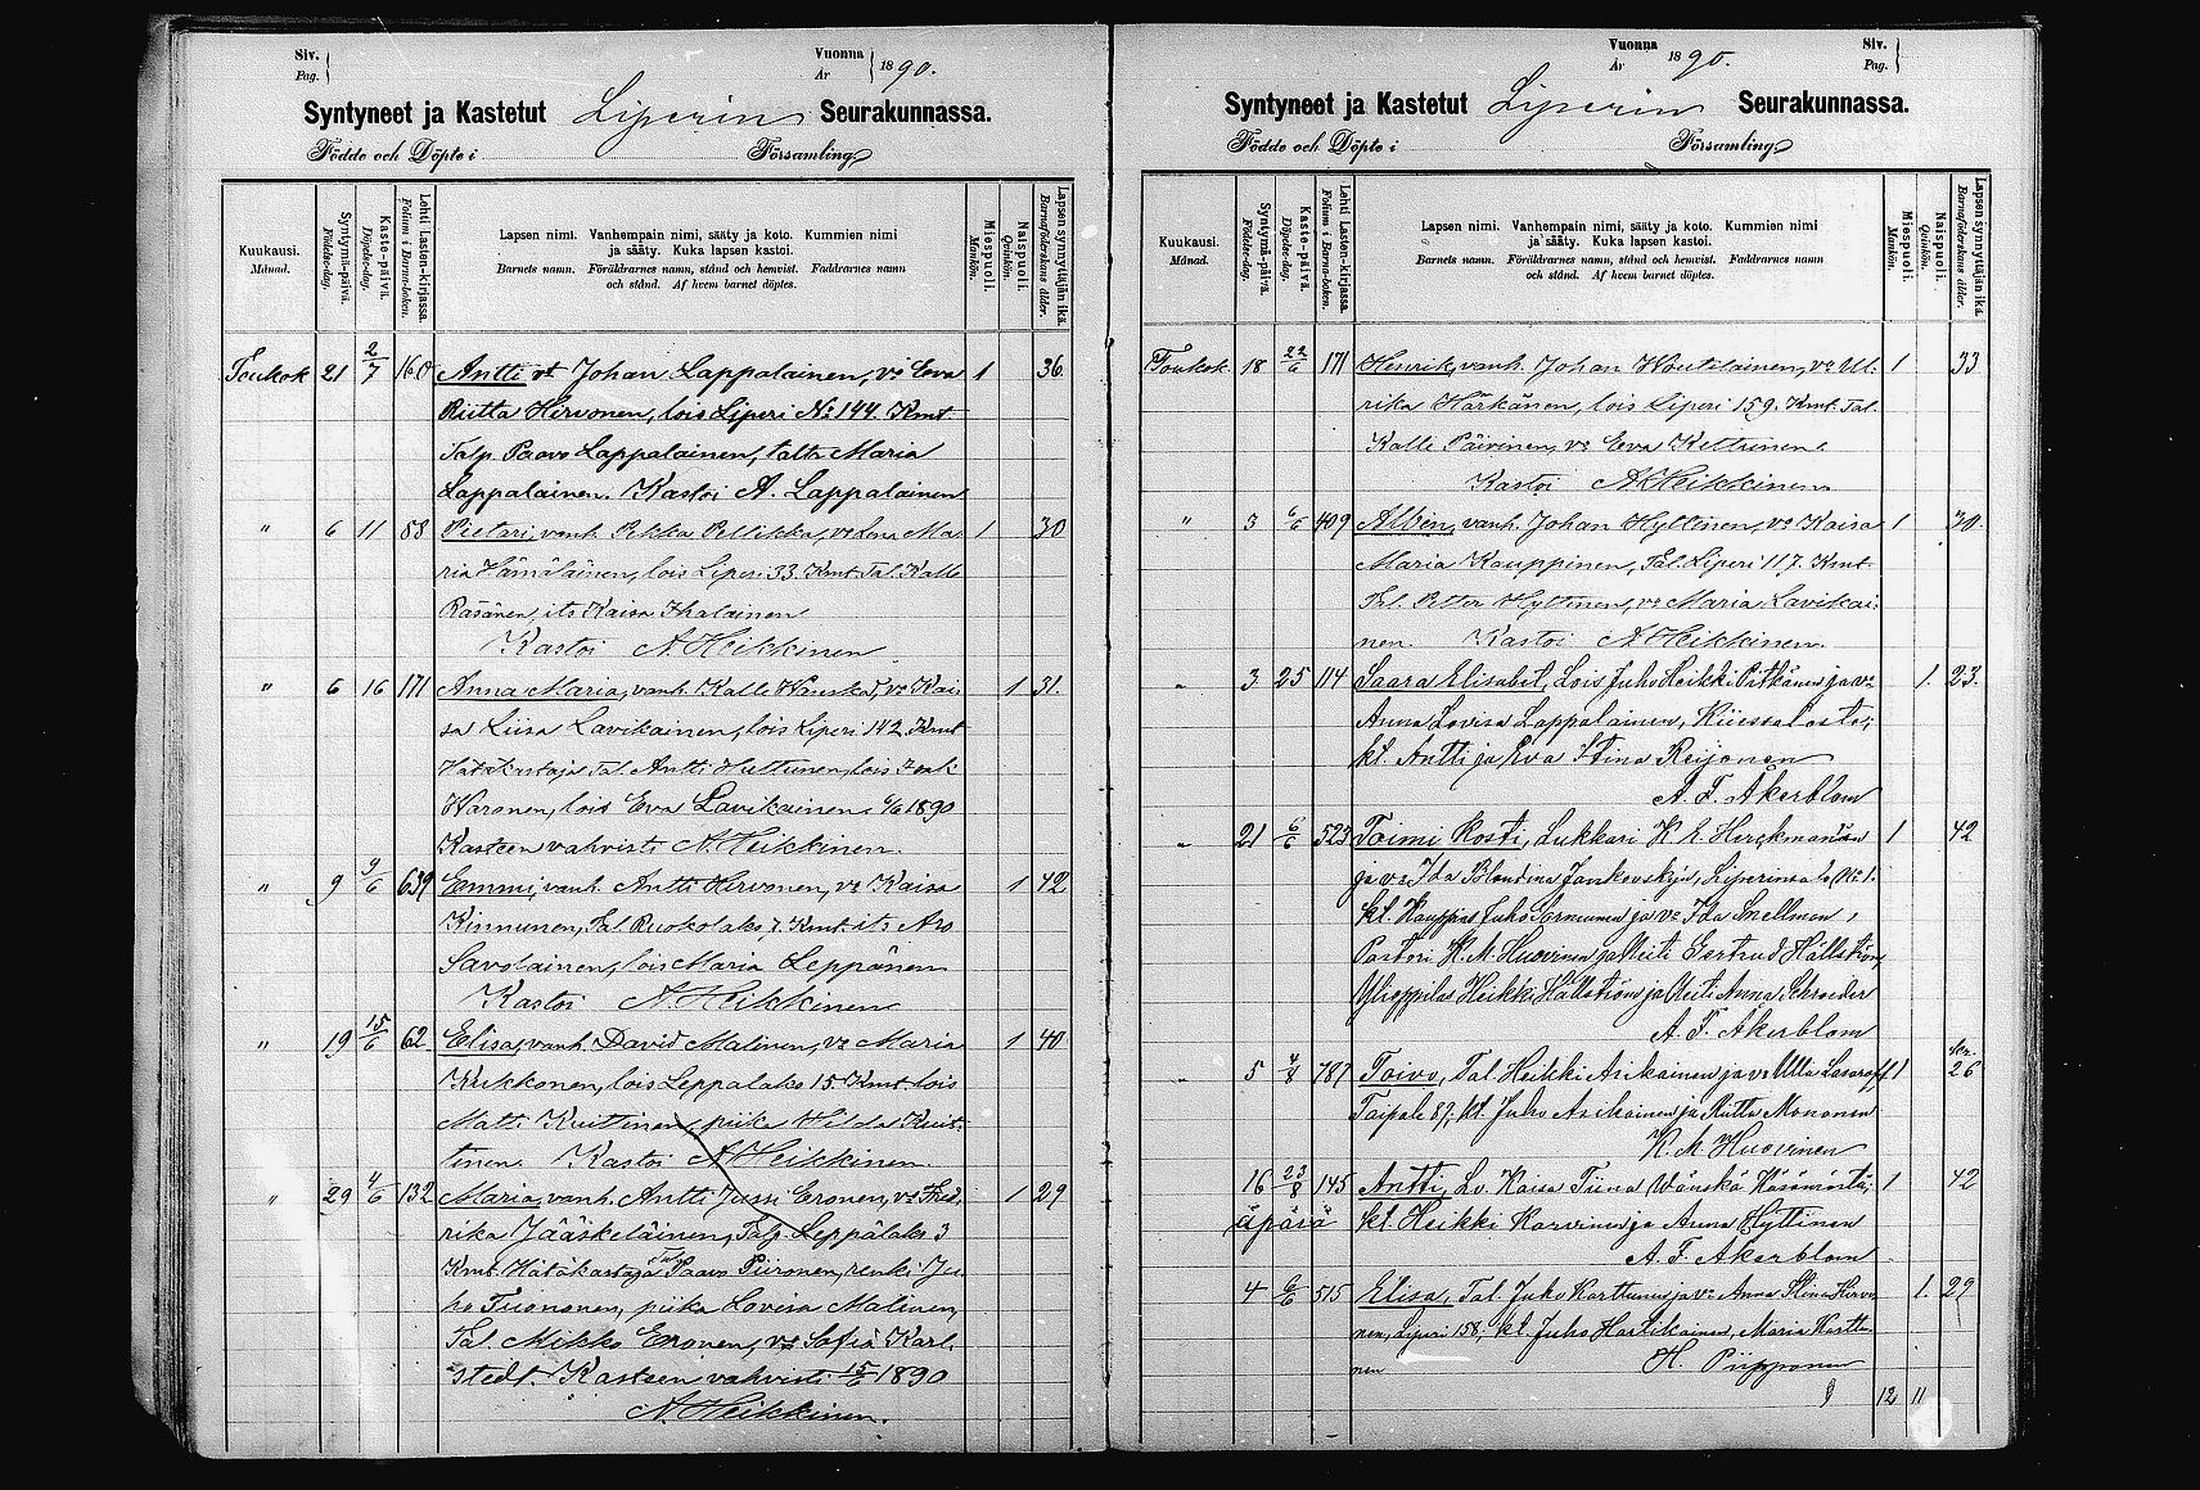 Siv. Vuonna
Pag. År 1890.
Syntyneet ja Kastetut Liperin Seurakunnassa.
Födde och Döpte i Församling
Kuukausi. Månad.
Syntymä-päivä. Födelse-dag.
Kaste-päivä. Döpelse-dag.
Lehti Lasten-kirjassa. Folium i Barna-boken.
Lapsen nimi. Vanhempain nimi, sääty ja koto. Kummien nimi
ja sääty. Kuka lapsen kastoi.
Barnets namn. Föräldrarnes namn, stånd och hemvist. Faddrarnes namn
och stånd. Af hvem barnet döptes.
Miespuoli. Mankön.
Naispuoli. Qvinkön.
Lapsen synnyttäjän ikä. Barnaföderskans ålder.
Toukok 21 2/7 160 Antti vt Johan Lappalainen, vo Eeva 1 36
Riitta Hirvonen, lois Liperi No 144. Kmt
Talp. Paavo Lappalainen, taltr Maria
Lappalainen. Kastoi A. Lappalainen
" 6 11 58 Pietari, vanh. Pekka Pellikka, vo Lena Ma- 1 30
ria Hämäläinen, lois Liperi 33. Kmt. Tal. Kalle
Räsänen, its Kaisa Ihalainen
Kastoi A. Heikkinen
" 6 16 171 Anna Maria, vanh. Kalle Wänskä, vo Kai- 1 31.
sa Liisa Lavikainen, lois Liperi 142. Kmt
Hätäkastaja Tal. Antti Huttunen, lois
Waronen, lois Eva Lavikainen. 6/6 1890
Kasteen vahvisti A. Heikkinen.
" 9 9/6 639 Emmi, vanh. Antti Hirvonen, vo Kaisa 1 42
Kinnunen, Tal. Ruokolaks 7. Kmt. its Aro
Savolainen, lois Maria Leppänen
Kastoi A. Heikkinen
" 19 15/6 62. Elisa, vanh. David Malinen, vo Maria 1 40
Kukkonen, lois Leppälaks 15. Kmt. lois
Matti Kuittinen, piika Hilda Kuit-
tinen. Kastoi A. Heikkinen.
" 29 4/6 132 Maria, vanh. Antti Jussi Eronen, vo Fred- 1 29
rika Jääskeläinen, Talp. Leppälaks 3
Kmt. Hätäkastaja Tal Paavo Piironen, renki Ju-
ho Tuononen, piika Lovisa Malinen,
Tal. Mikko Eronen, vo Sofia Karl-
stedt. Kasteen vahvisti 15/6 1890
A. Heikkinen.
Vuonna Siv.
År 1890. Pag.
Syntyneet ja Kastetut Liperin Seurakunnassa.
Födde och Döpte i Församling
Kuukausi. Månad.
Syntymä-päivä. Födelse-dag.
Kaste-päivä. Döpelse-dag.
Lehti Lasten-kirjassa. Folium i Barna-boken.
Lapsen nimi. Vanhempain nimi, sääty ja koto. Kummien nimi
ja sääty. Kuka lapsen kastoi.
Barnets namn. Föräldrarnes namn, stånd och hemvist. Faddrarnes namn
och stånd. Af hvem barnet döptes.
Miespuoli. Mankön.
Naispuoli. Qvinkön.
Lapsen synnyttäjän ikä. Barnaföderskans ålder.
Toukok. 18 22/6 171 Henrik, vanh. Johan Woutilainen, vo Ul- 1 33
rika Härkänen, lois Liperi 159. Kmt. Tal.
Kalle Päivinen, vo Eeva Kettunen.
Kastoi A. Heikkinen
" 3 6/6 409 Albin, vanh. Johan Hyttinen, vo Kaisa 1 30.
Maria Kauppinen, Tal. Liperi 117. Kmt.
Tal. Petter Hyttinen, vo Maria Lavikai-
nen. Kastoi A. Heikkinen.
" 3 25 114 Saara Elisabet, Lois Juho Heikki Pitkänen ja vo 1. 23.
Anna Lovisa Lappalainen, Kiiessalosta;
kt. Antti ja Eva Stina Reijonen
A. F. Åkerblom
" 21 6/6 523 Toimi Kosti, Lukkari K. E. Herckmanin 1 42
ja vo Ida Blondina Jankovskyn, Liperinsalo No 1.
kt. Kauppias Juho Sormunen ja vo Ida Snellman,
Pastori K. M. Huovinen ja Neiti Gertrud Hällström,
Ylioppilas Heikki Hällström ja Neiti Anna Schroeder
A. F. Åkerblom
" 5 4/8 787 Toivo, Tal. Heikki Asikainen ja vo Ulla Lasaroff 1 26
Taipale 89; kt. Juho Asikainen ja Riitta Mononen
K. M. Huovinen
16 23/8 145 Antti, Lv. Kaisa Tiina Wänskä Käsämästä; 1 42
äpärä kt. Heikki Karvinen ja Anna Hyttinen
A. F. Åkerblom
4 6/6 515 Elisa, Tal. Juho Karttunen ja vo Anna Stina Hirvo- 1. 29
nen, Liperi 158; kt. Juho Hartikainen, Maria Karttu-
nen H. Piipponen
12 11